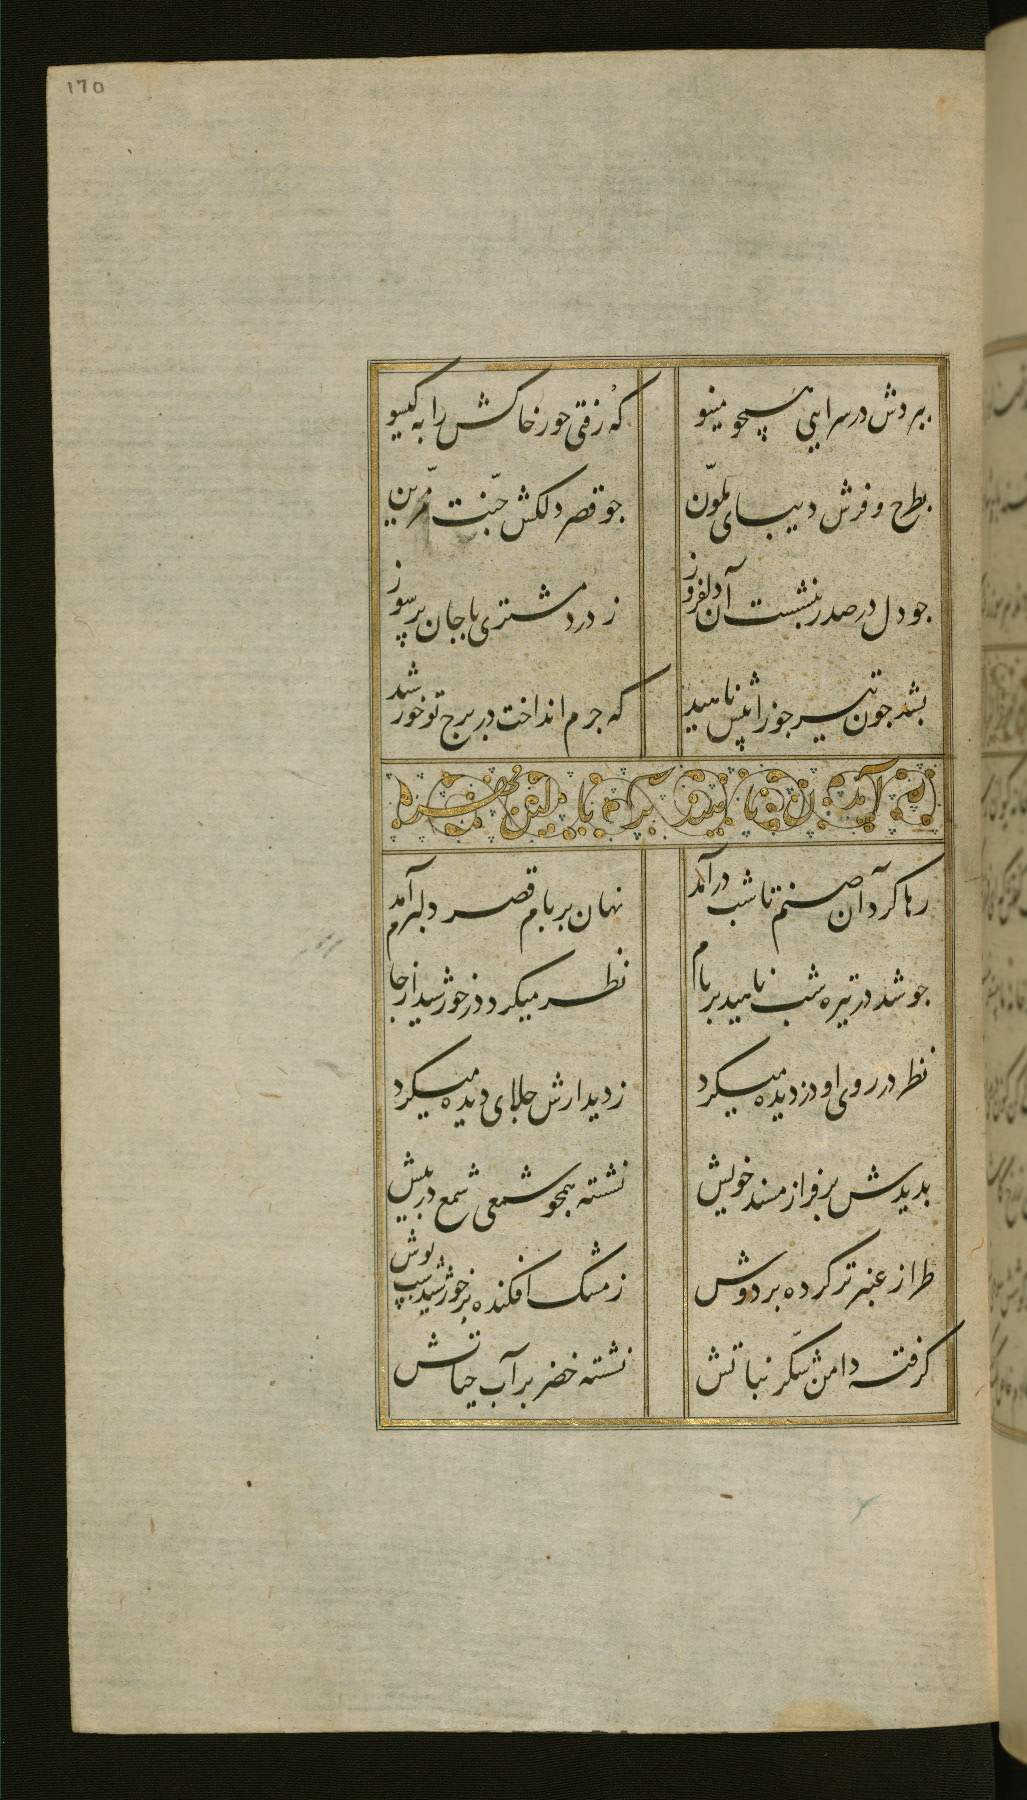 ۱۷۵
ببردش در سرایی همچو مینو
که رفتی حور خاکش را به گیسو
بطرح و فرش دیبای ملوّن
جو قصر دلکش جنّت مزّین
جو دل در صدر بنشست آن دلفروز
ز درد مشتری با جان پرسوز
بشد جون تیر جوزا پیش ناهید
که جرم انداخت در برج تو خورشید
آمدن ناهید بر بام
رها کرد آن صنم تا شب درآمد
نهان بر بام قصر دلبرم آمد
جو شد در تیره شب ناهید بر بام
نظر میکرد در خورشید از جا
نظر در روی او دزدیده میکرد
ز دیدارش جلای دیده میکرد
بدیدش بر فراز مسند خویش
نشسته همجو شمعی شمع در پیش
طراز عنبر تر کرده بر دوش
ز مشک افکنده بر خورشید شب پوش
گرفته دامن شکّر نباتش
نشسته خضر بر آب حیاتش